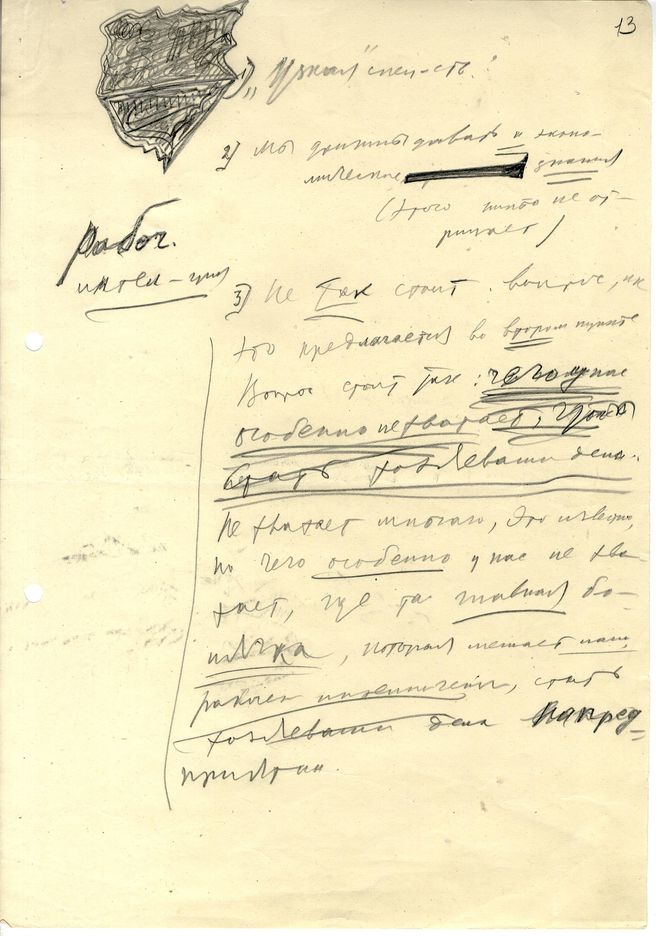 13
1) "Узкая" спец-сть.
2) Мы должны давать и эконо-
мические знания
(этого никто не от-
рицает)
Рабоч.
интел-ция
3) Не так стоит вопрос, как
это предлагается во втором пункте
Вопрос стоит так: чего у нас
особенно не хватает, чтобы
стать хозяевами дела.
Не хватает многого, это известно,
но чего особенно у нас не хва-
тает, где та главная бо-
лячка, которая мешает
рабочей интеллигенции, стать
хозяевами дела на пред-
приятии.